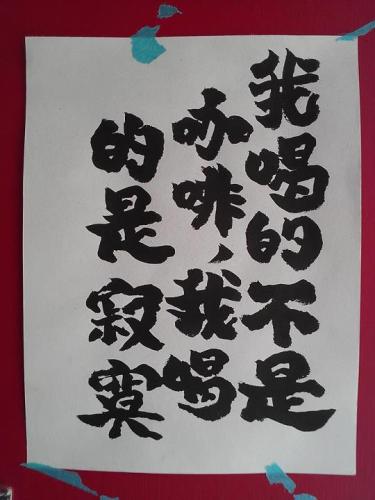 我喝的不是
咖啡，我喝
的是寂寞